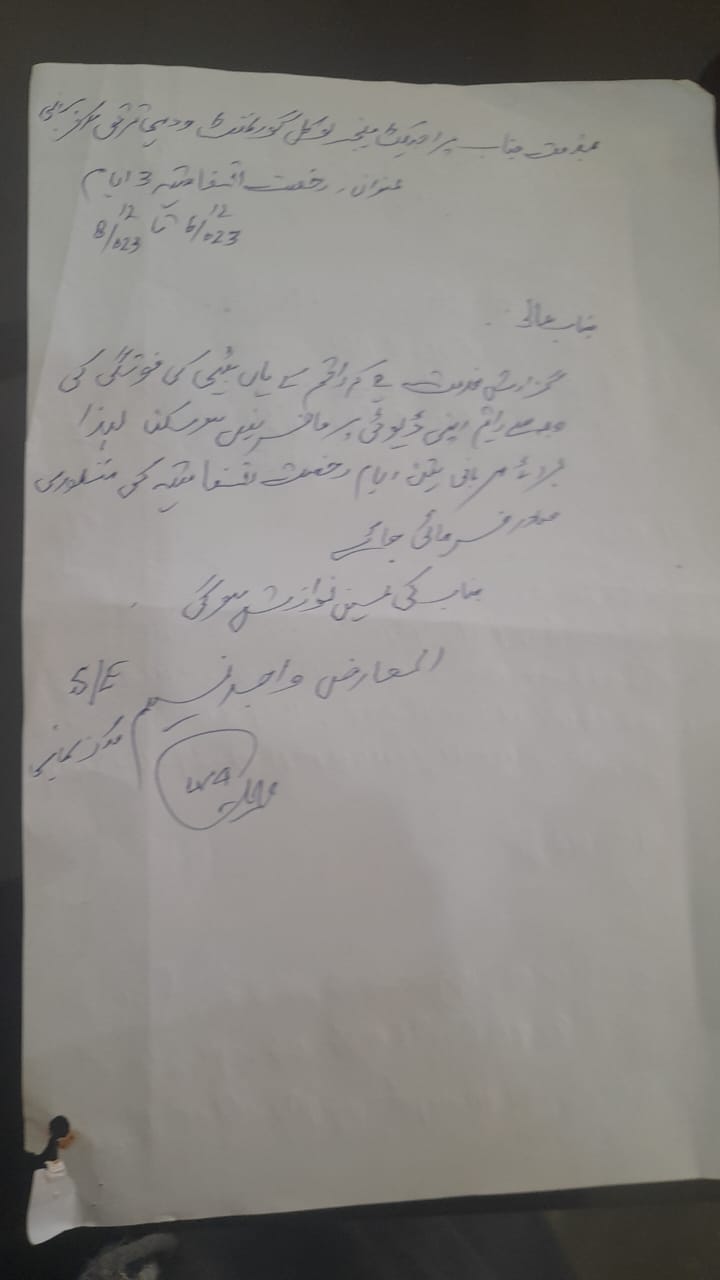 بخدمت جناب پراجیکٹ منیجر لوکل گورنمنٹ و دیہی ترقی مرکز
عنوان۔ رخصت اتفاقیہ 3 ایام
6/12/023 تا 8/12/023
جناب عالی
گزارش خدمت ہے کہ راقم کے ہاں بیٹی کی فوتگی کی
وجہ سے راقم اپنی ڈیوٹی پر حاضر نہیں ہو سکتا لہذا
برائے مہربانی تین ایام رخصت اتفاقیہ کی منظوری
صادر فرمائی جائے
جناب کی عین نوازش ہو گی
العارض واجد نسیم S/E
مرکز